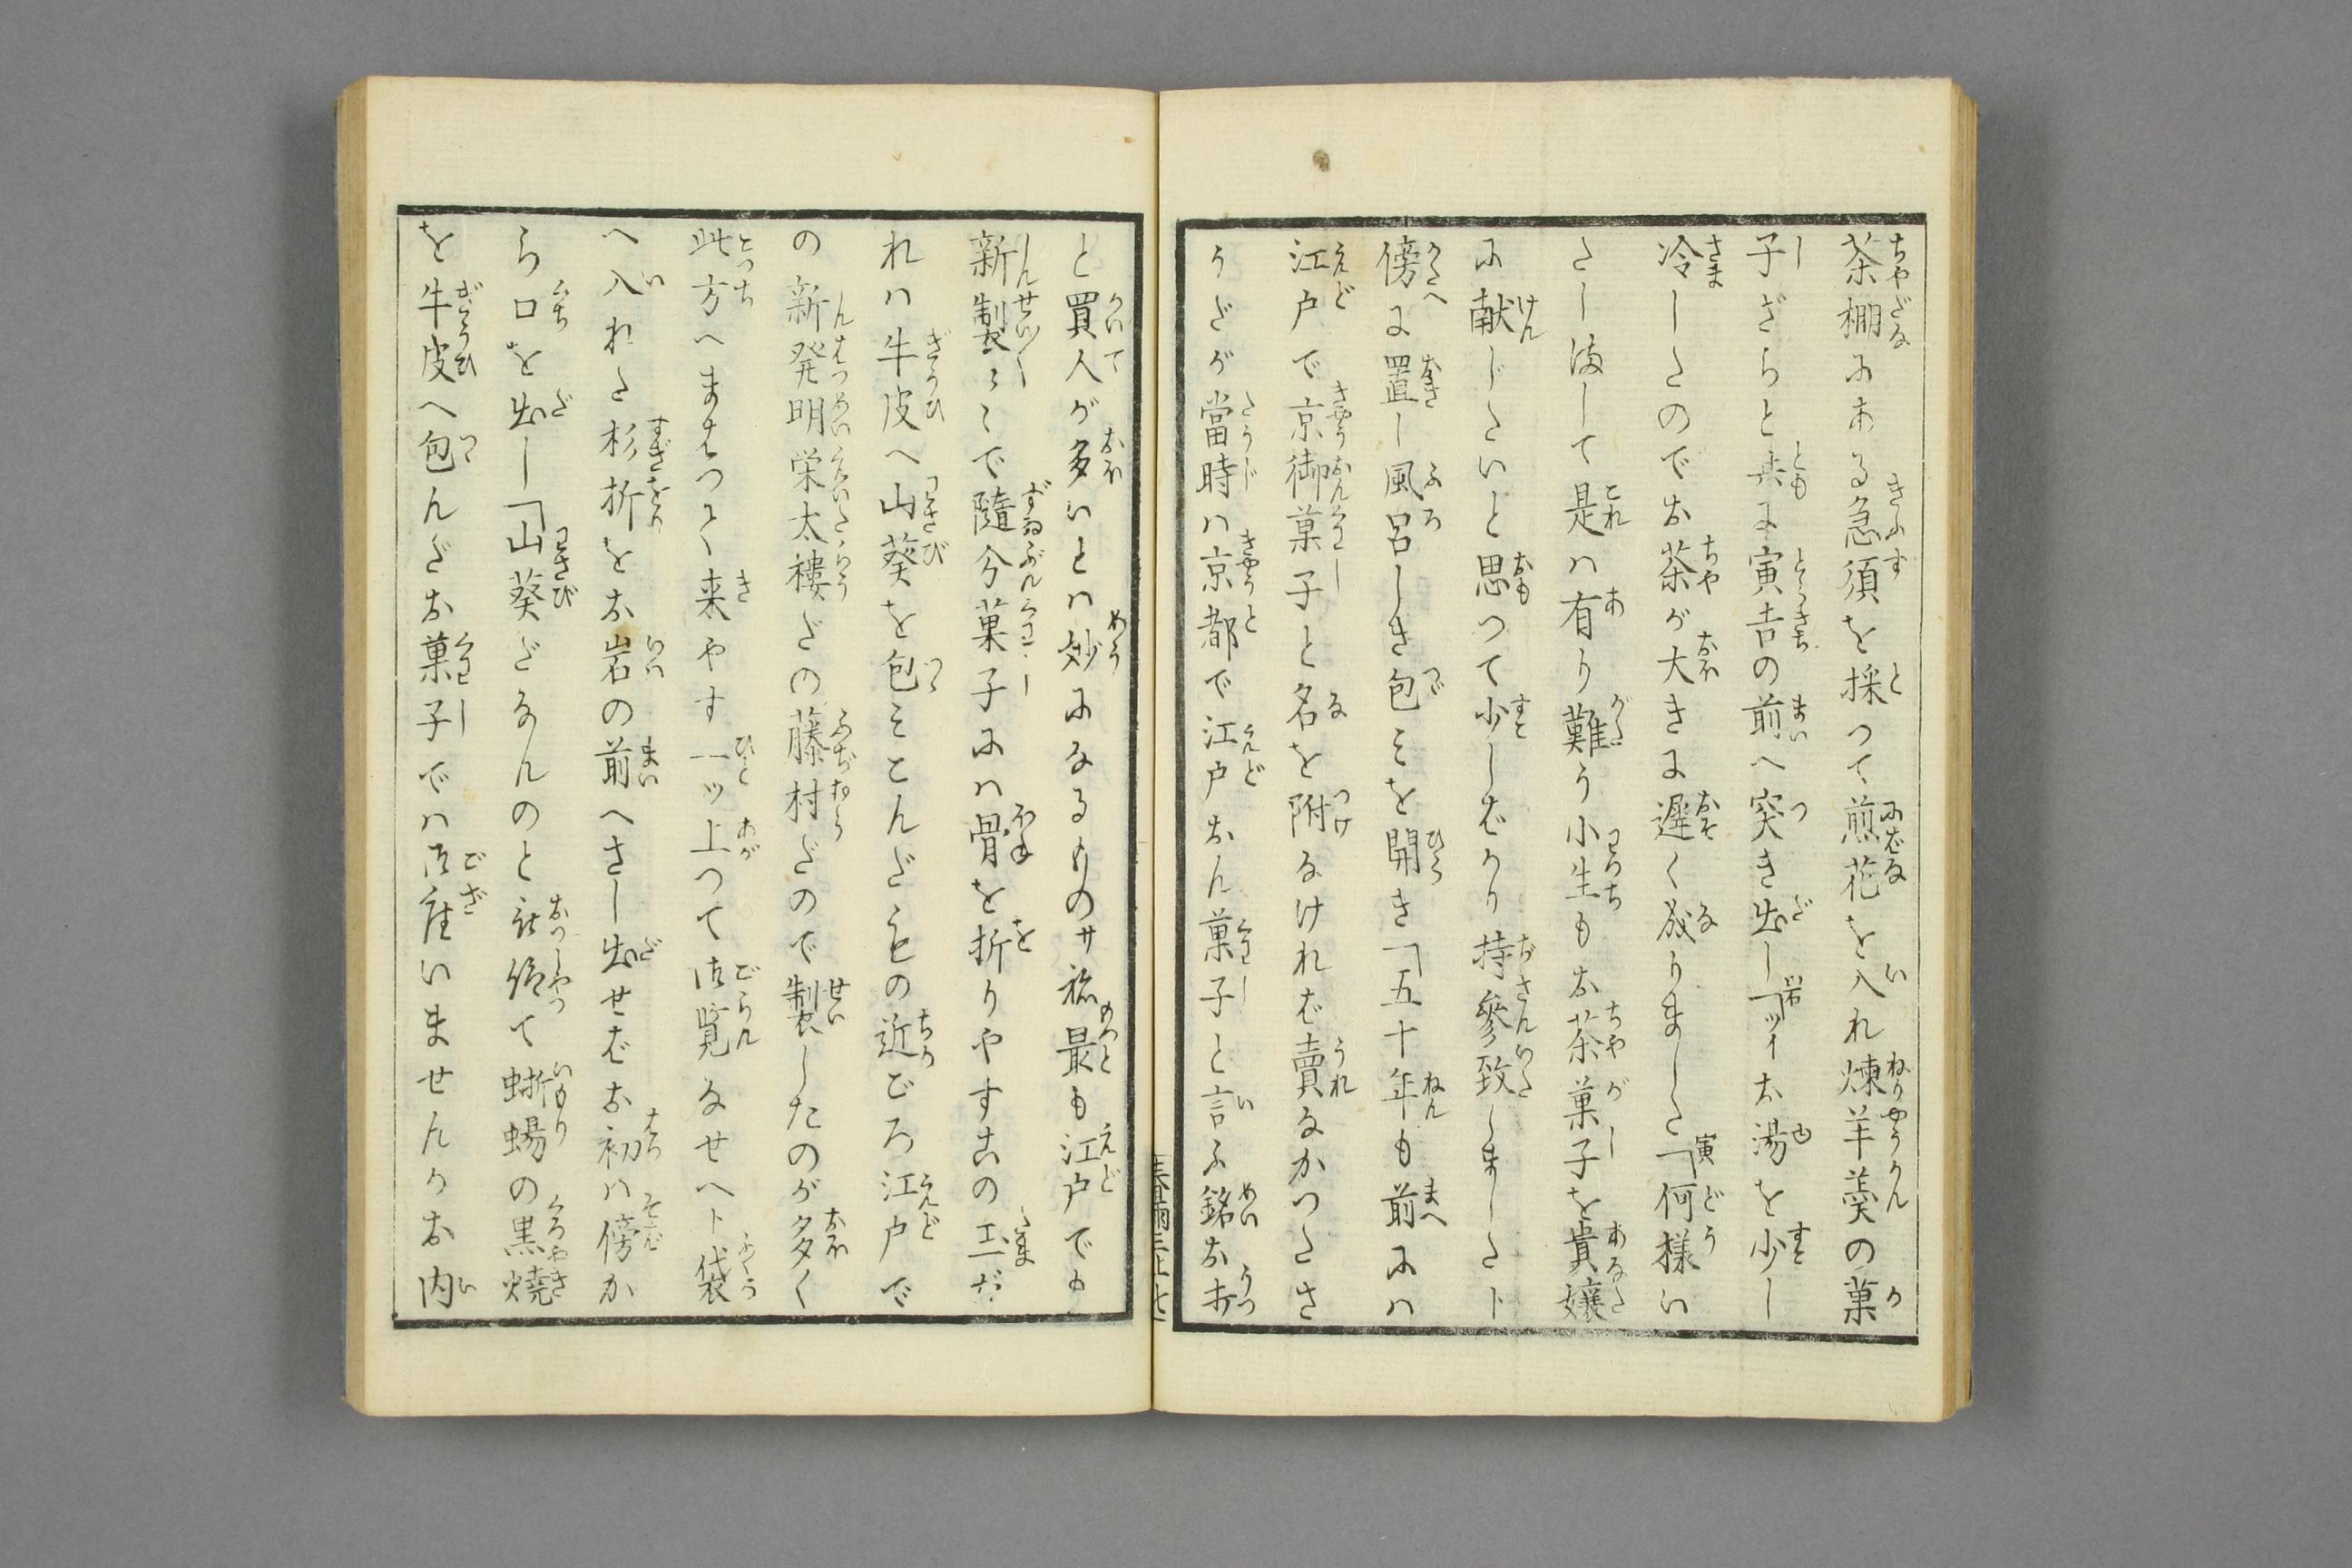 茶棚にある急須を採つて煎花を入れ煉羊羹の菓
子ざらと共に寅吉の前へ突き出し「ツイお湯を少し
冷したのでお茶が大きに遅く成りました「何様い
たし海して是ハ有り難う小生もお茶菓子を貴嬢
に献じたいと思つて少しばかり持參致しましたト
傍に置し風呂しき包ミを開き「五十年も前にハ
江戸で京御菓子と名を附なけれバ賣なかつたさ
うだが當時ハ京都で江戸おん菓子と言ふ銘お打
と買人が多いとハ妙になるものサ 最も江戸でも
新製〻〻で隨分菓子にハ骨を折りやすこの玉だ
れハ牛皮へ山葵を包ミこんだもの近ごろ江戸で
の新発明栄太樓だの藤村だので製したのが多く
此方へまはつて来やす一ツ上つて御覧なせへト袋
へ入れた杉折をお岩の前へさし出せばお初ハ傍か
ら口を出し「山葵だなんのと被仰て蜥蜴の黒燒
を牛皮へ包んだお菓子でハ御座いませんかお内